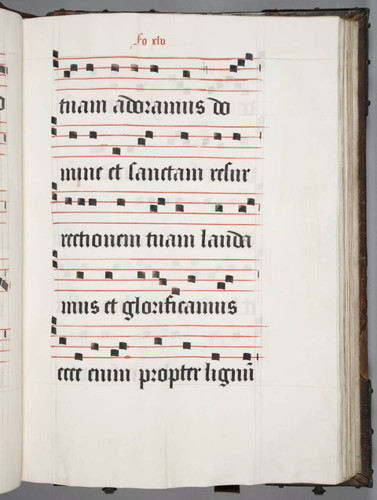 Fo xlv
tuam adoramus do
mine et sanctam resur
rectionem tuam lauda
mus et glorificamus
ecce enim propter lignū